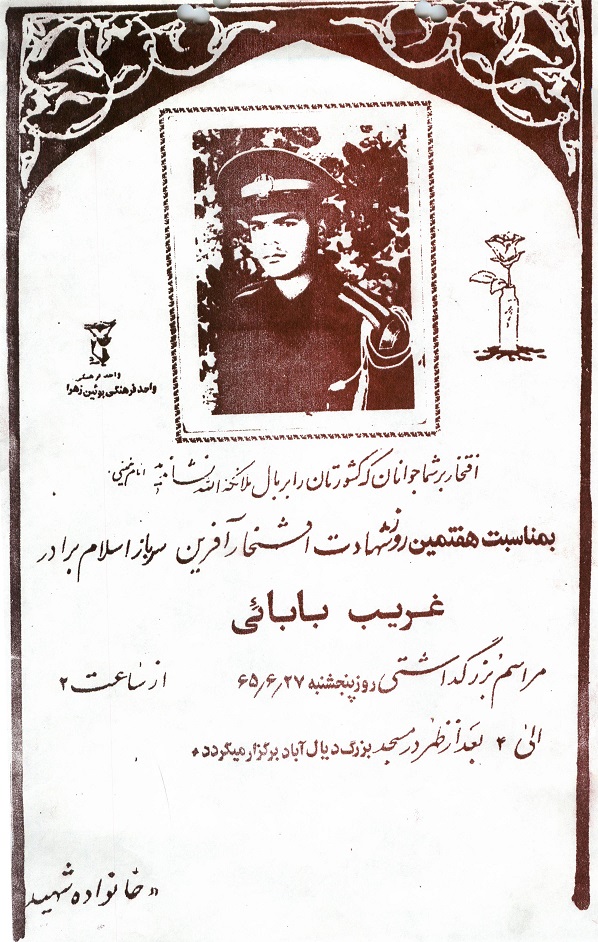 واحد فرهنگی
واحد فرهنگی بوئین زهرا
افتخار بر شما جوانان که کشورتان را بر بال ملائکة الله نشاندید امام خمینی
بمناسبت هفتمین روز شهادت افتخار آفرین سرباز اسلام برادر
غریب بابائی
مراسم بزرگداشتی روز پنجشنبه ۶۵٫۶٫۲۷ از ساعت ۲
الی ۴ بعد از ظهر در مسجد بزرگ دیال آباد برگزار میگردد
«خانواده شهید